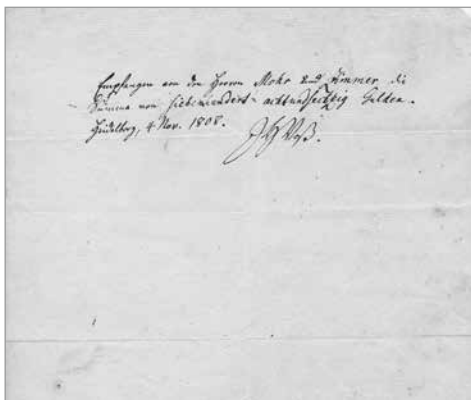 Empfangen von den Herren Mohr und Zimmer die
Summe von siebenhundert achtundsechzig Gulden.
Heidelberg, 4 Nov. 1808.
JHVoß.